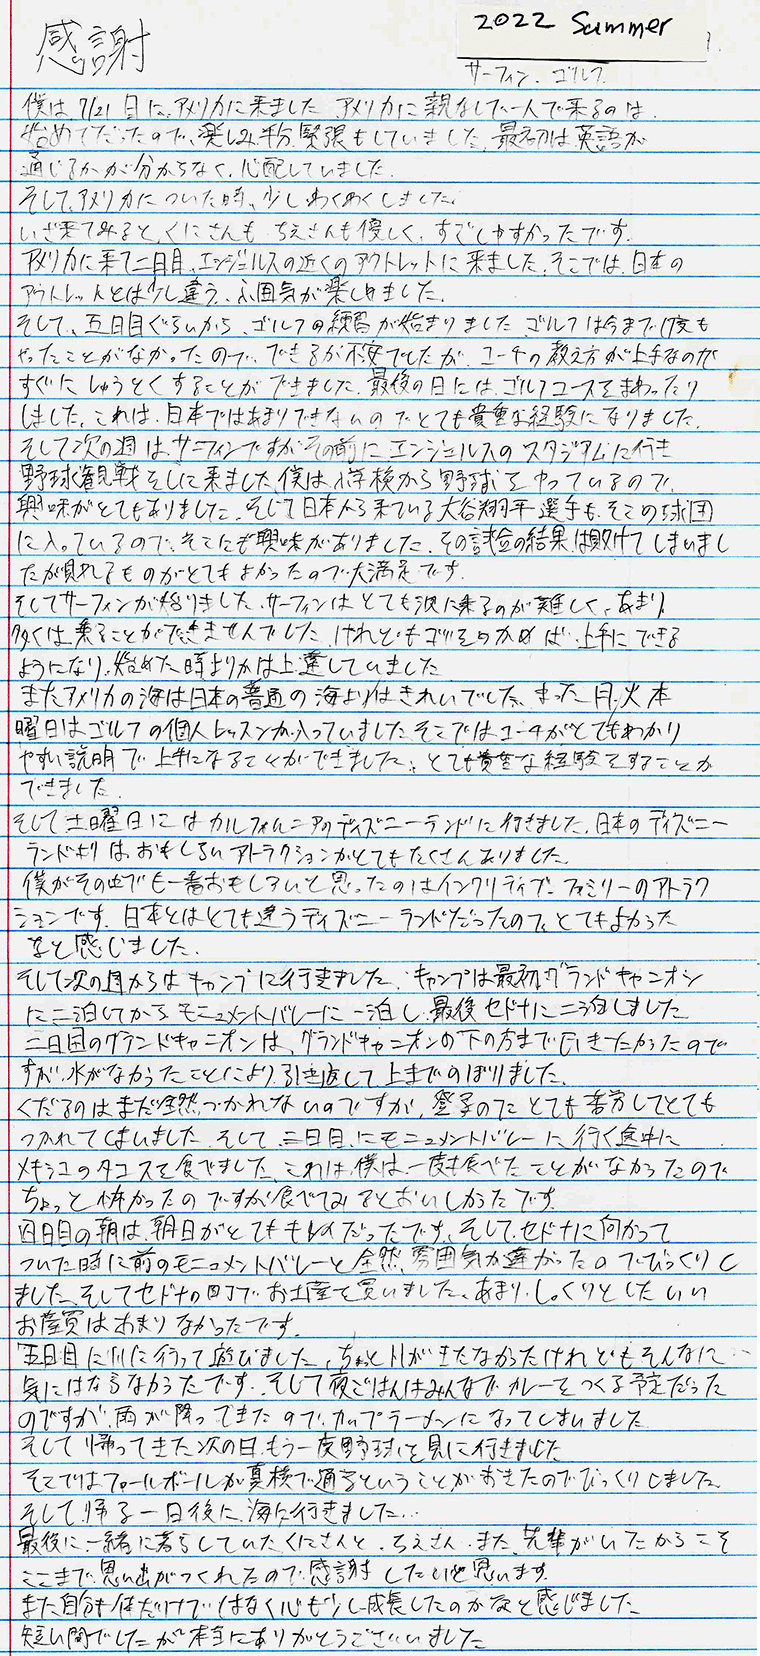 2022 Summer
感謝
サーフィン、ゴルフ
僕は7/21日にアメリカに来ました アメリカに親なしで一人で来るのは
始めてだったので、楽しみ半分、緊張もしていました。最初は英語が
通じるかが分からなく、心配していました。
そして、アメリカについた時、少しわくわくしました。
いざ来てみると、くにさんも ちえさんも優しく、すごしやすかったです。
アメリカに来て二日目、エンジェルスの近くのアウトレットに来ました。そこでは、日本の
アウトレットとは少し違う、ふ囲気が楽しめました。
そして、五日目ぐらいから、ゴルフの練習が始まりました ゴルフは今まで1度も
やったことがなかったので、できるか不安でしたが、コーチの教え方が上手なので
すぐにしゅうとくすることができました。最後の日には、ゴルフコースをまわったり
しました。これは、日本ではあまりできないのでとても貴重な経験になりました。
そして次の週は、サーフィンですがその前にエンジェルスのスタジアムに行き
野球観戦をしに来ました。僕は小学校から野球をやっているので、
興味がとてもありました。そして日本から来ている大谷翔平選手も、そこの球団
に入っているので、そこにも興味がありました。その試合の結果は敗けてしまいまし
たが見れるものがとてもよかったので大満足です。
そしてサーフィンが始りました。サーフィンはとても波に乗るのが難しく、あまり
多くは乗ることができませんでした けれどもコツをつかめば 上手にできる
ようになり、始めた時よりかは上達していました
またアメリカの海は日本の普通の海よりはきれいでした。また 月、火、木
曜日はゴルフの個人レッスンが入っていました。そこではコーチがとてもわかり
やすい説明で上手になることができました。とても貴重な経験をすることが
できました。
そして土曜日にはカルフォルニアのディズニーランドに行きました。日本のディズニー
ランドよりは、おもしろいアトラクションがとてもたくさんありました。
僕がその中でも一番おもしろいと思ったのはインクリディブル ファミリーのアトラク
ションです。日本とはとても違うディズニーランドだったので、とてもよかった
なと感じました。
そして次の週からはキャンプに行きました。キャンプは最初グランドキャニオン
に二泊してから モニュメントバレーに一泊し、最後セドナに二泊しました
二日目のグランドキャニオンは、グランドキャニオンの下の方まで行きたかったので
すが、水がなかったことにより、引き返して上までのぼりました。
くだるのはまだ全然つかれないのですが、登るのは とても苦労してとても
つかれてしまいました。そして、三日目にモニュメントバレーに行く途中に
メキシコのタコスを食べました。これは、僕は一度も食べたことがなかったので
ちょっと怖かったのですが食べてみるとおいしかったです。
四日目の朝は、朝日がとてもキレイだったです。そして、セドナに向かって
ついた時に前のモニュメントバレーと全然、雰囲気が違かったのでびっくりし
ました。そしてセドナの町でお土産を買いました。あまり、しっくりとしたいい
お産買はあまりなかったです。
五日目に川に行って遊びました。ちょっと川がきたなかったけれどもそんなに
気にはならなかったです。そして夜ごはんはみんなでカレーをつくる予定だった
のですが、雨が降ってきたので、カップラーメンになってしまいました
そして帰ってきた次の日、もう一度野球を見に行きました
そこではファールボールが真横で通るということがおきたのでびっくりしました。
そして、帰る一日後に、海に行きました。
最後に、一緒に暮らしていたくにさんと、ちえさん、また、先輩がいたからこそ
ここまで、思い出がつくれたので、感謝したいと思います。
また自分も体だけではなく心も少し成長したのかなと感じました
短い間でしたが本当にありがとうございました